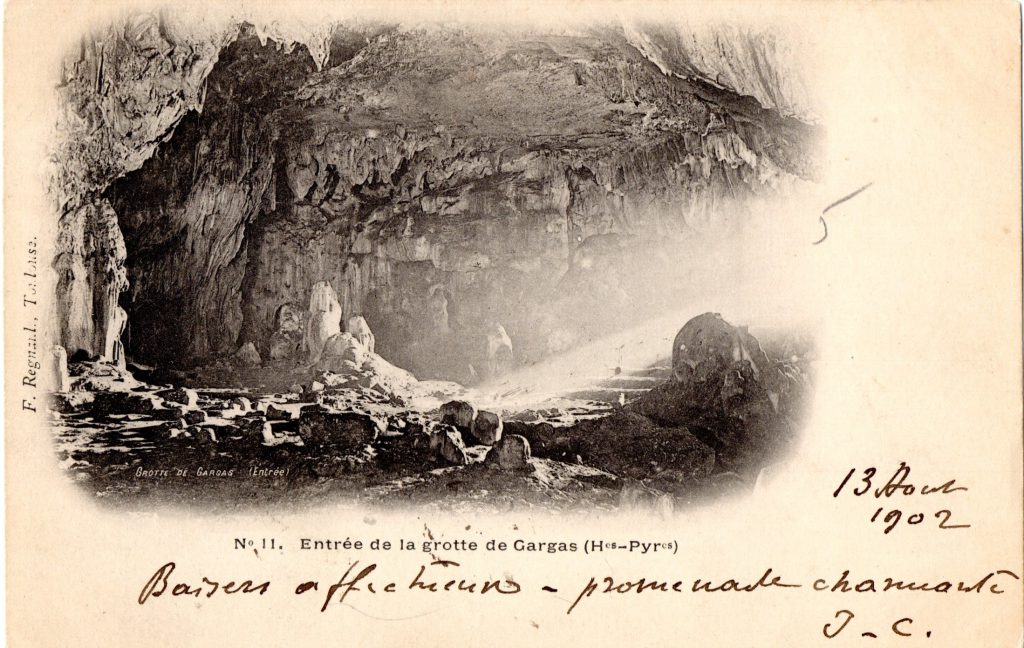 5
F. Regnault, Toulouse.
GROTTE DE GARGAS (Entrée)
13 Aout
1902
No 11. Entrée de la grotte de Gargas (Hes-Pyres)
Baisers affectueux - promenade charmante
J-C.